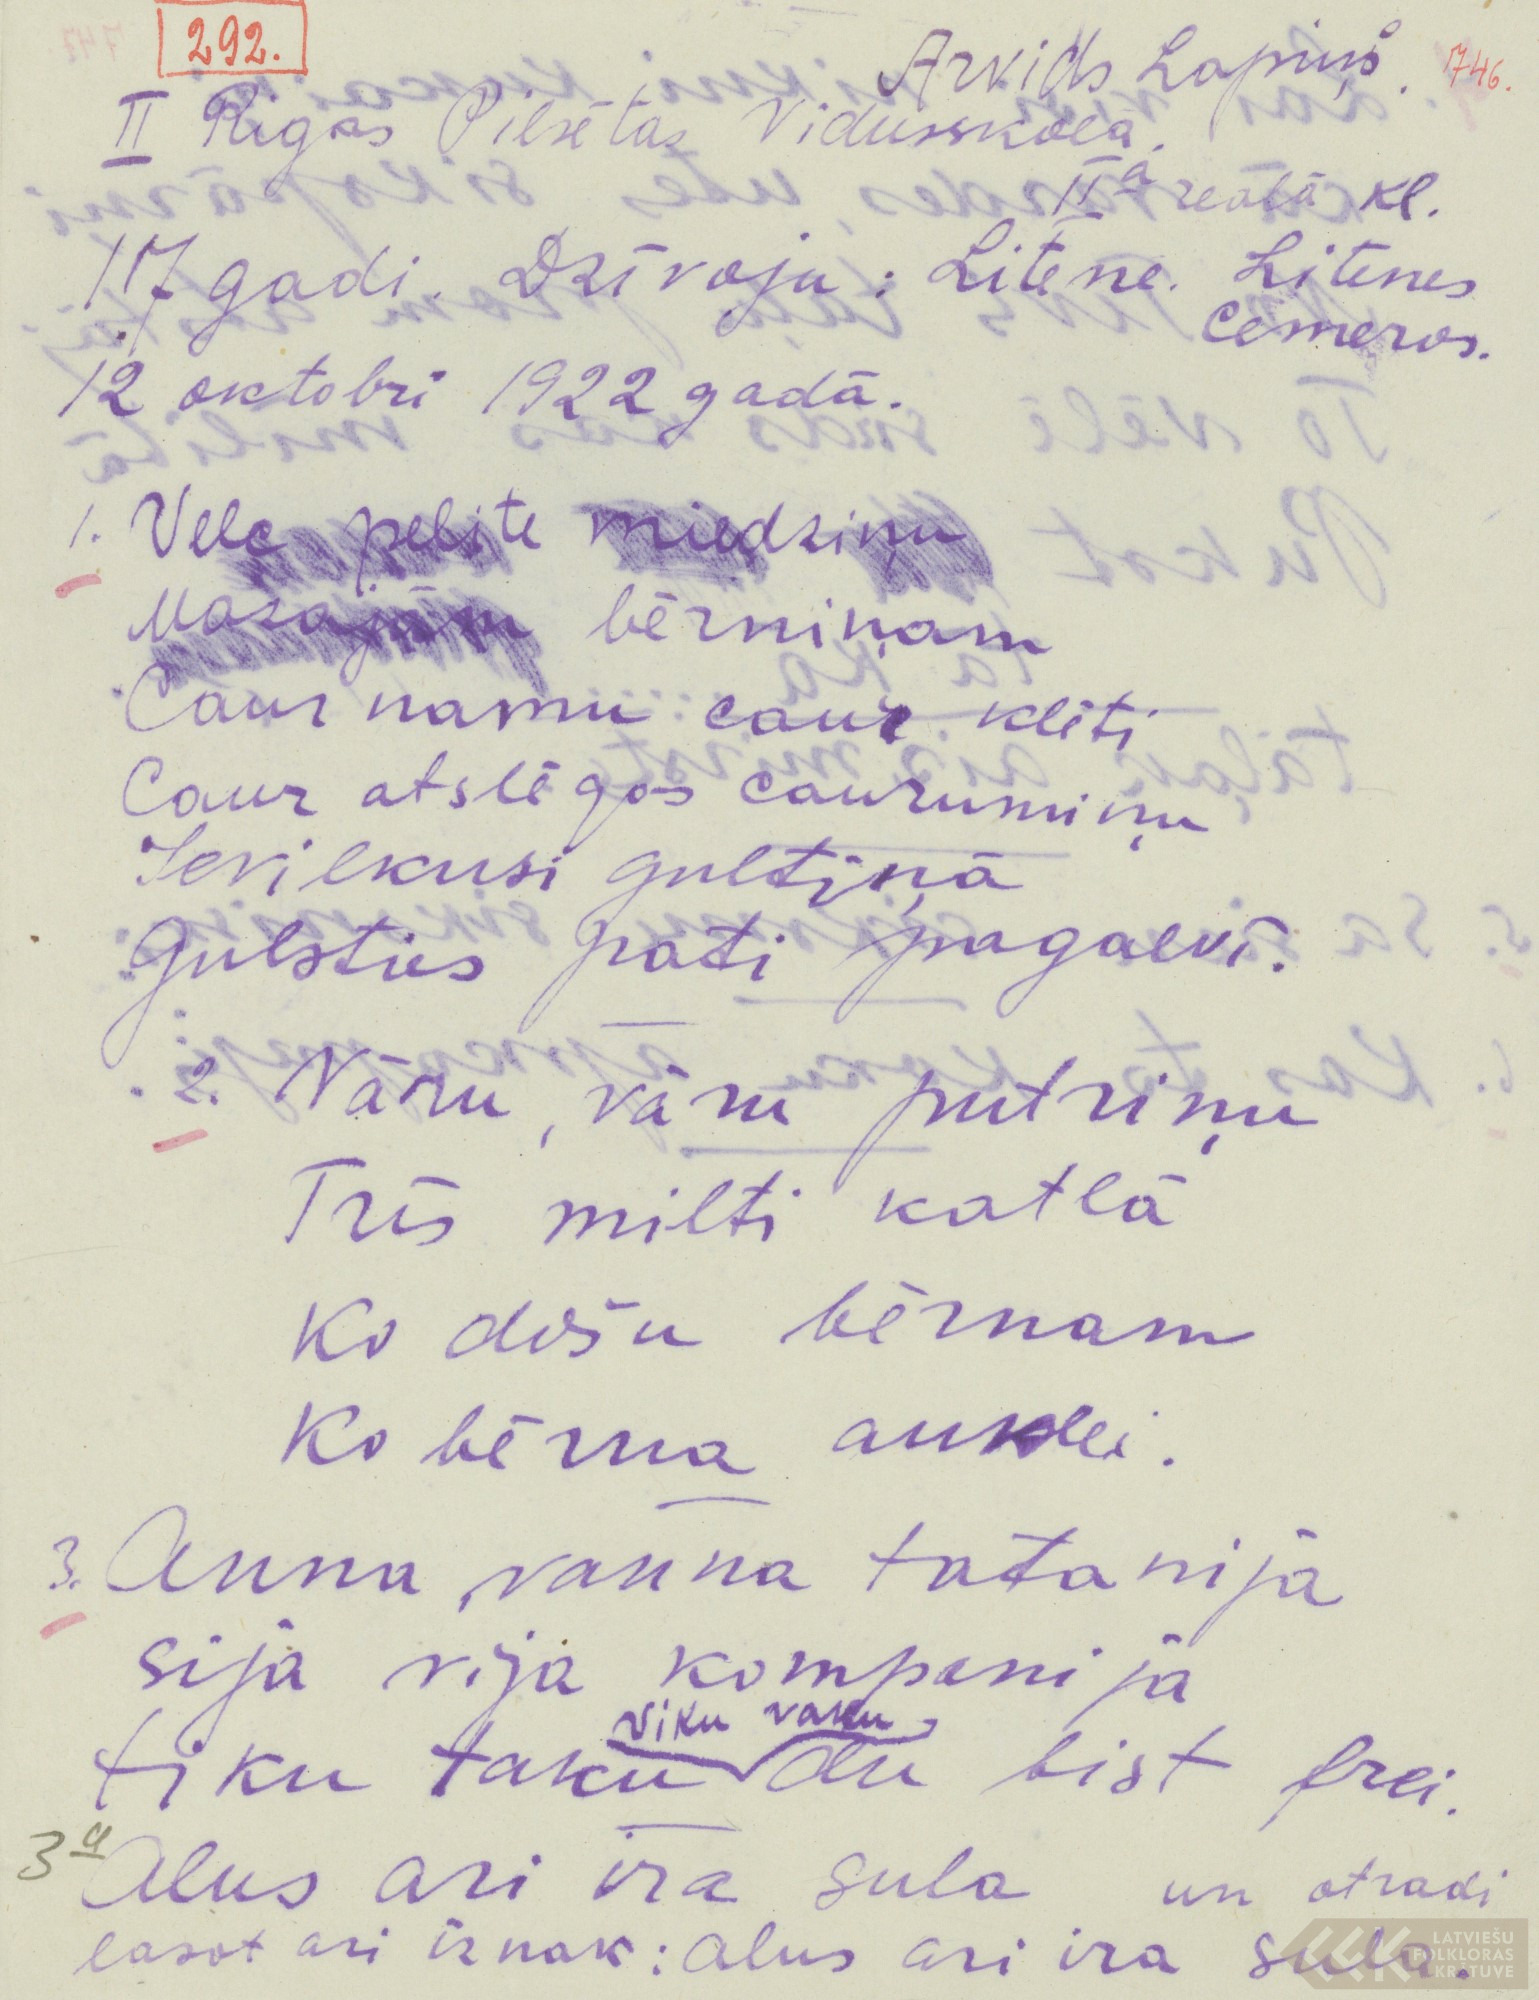 292.
Arvids Lapiņš. 746.
II Rigas Pilsētas Vidusskola.
IIa reālā kl.
17 gadi. Dzīvoju: Litene. Litenes
Cemeros.
12 oktobrī 1922 gadā.
1. Velc pelīte miedziņu
Mazajām bērniņam
Caur namu caur klēti
Caur atslēgas caurumiņu
Ievilkusi gultiņā
Gulsties pati pagalvī.
2. Vāru, vāru putriņu
Trīs milti katlā
Ko došu bērnam
Ko bērna auklei.
3. Anna, vanna tatanijā
sijā vijā kompanijā
viku vaku,
tiku taku du bist frei.
3a Alus ari ira sula un otradi
lasot ari iznak: alus ari ira sula.
LATVIEŠU
FOLKLORAS
KRĀTUVE